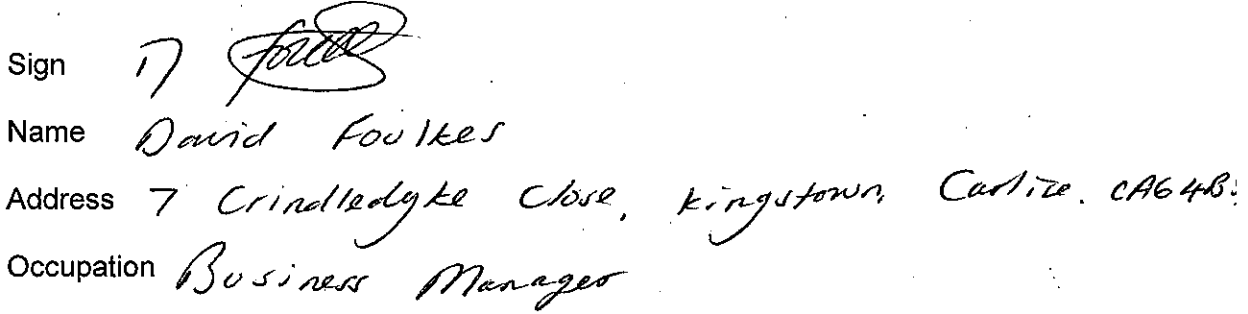 Sign D Foulkes
Name David Foulkes
Address 7 Crindledyke Close, Kingstown, Carlise. CA6 4B
Occupation Business Manager